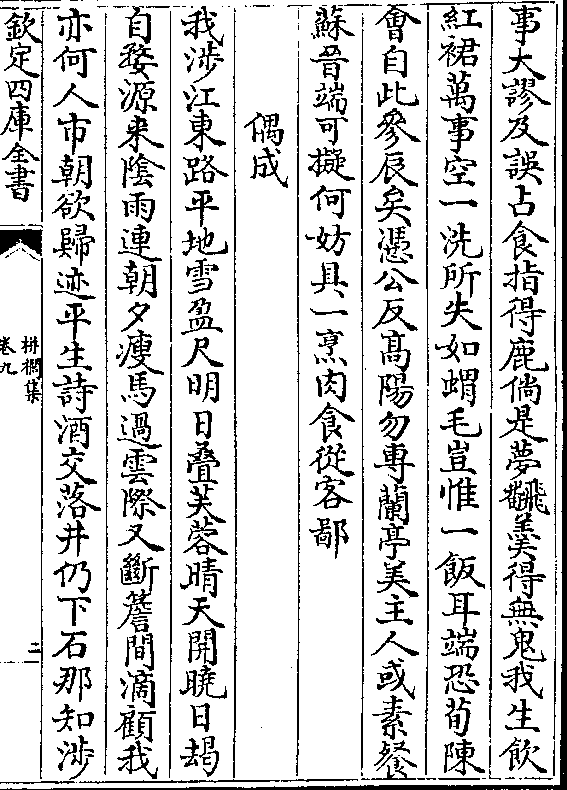 事大謬及誤占食指得鹿倘是夢飜羮得無鬼我生飲
紅裙萬事空一洗所失如蝟毛豈惟一飯耳端恐荀陳
㑹自此參辰矣憑公反髙陽勿專蘭亭美主人或素餐
蘇晉端可擬何妨具一烹肉食從客鄙
偶成
我渉江東路平地雪盈尺明日疊芙蓉晴天開曉日朅
自婺源来隂雨連朝夕瘦馬過雲際又斷簷間滴顧我
亦何人市朝欲歸迹平生詩酒交落井仍下石那知渉
欽定四庫全書
栟櫚集
卷九
二